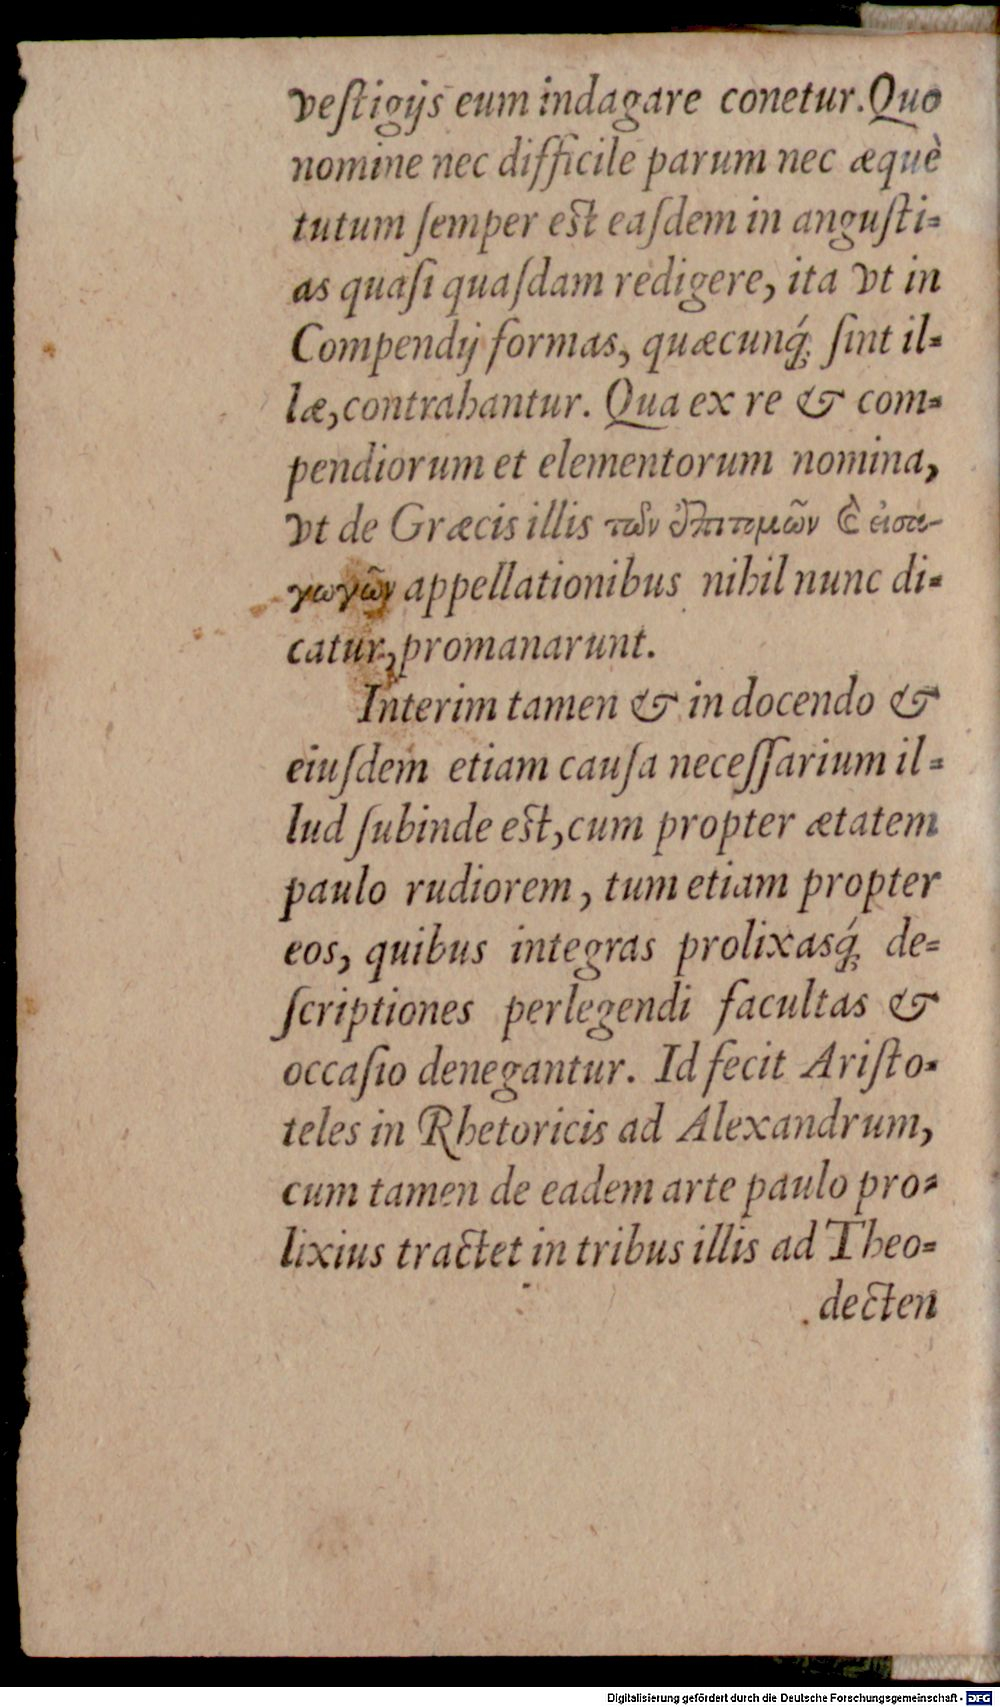 veſtigijs eum indagare conetur. Quo
nomine nec difficile parum nec æquè
tutum ſemper eſt eaſdem in anguſti=
as quaſi quaſdam redigere, ita vt in
Compendij formas, quæcunq́; ſint il=
læ, contrahantur. Qua ex re & com=
pendiorum et elementorum nomina,
vt de Græcis illis τῶν ἐπιτομῶν & εἰσα-
γωγῶν appellationibus nihil nunc di=
catur, promanarunt.
Interim tamen & in docendo &
eiuſdem etiam cauſa neceſſarium il=
lud ſubinde eſt, cum propter ætatem
paulo rudiorem, tum etiam propter
eos, quibus integras prolixasq́; de=
ſcriptiones perlegendi facultas &
occaſio denegantur. Id fecit Ariſto=
teles in Rhetoricis ad Alexandrum,
cum tamen de eadem arte paulo pro=
lixius tractet in tribus illis ad Theo=
decten
Digitalisierung gefördert durch die Deutsche Forschungsgemeinschaft - DFG